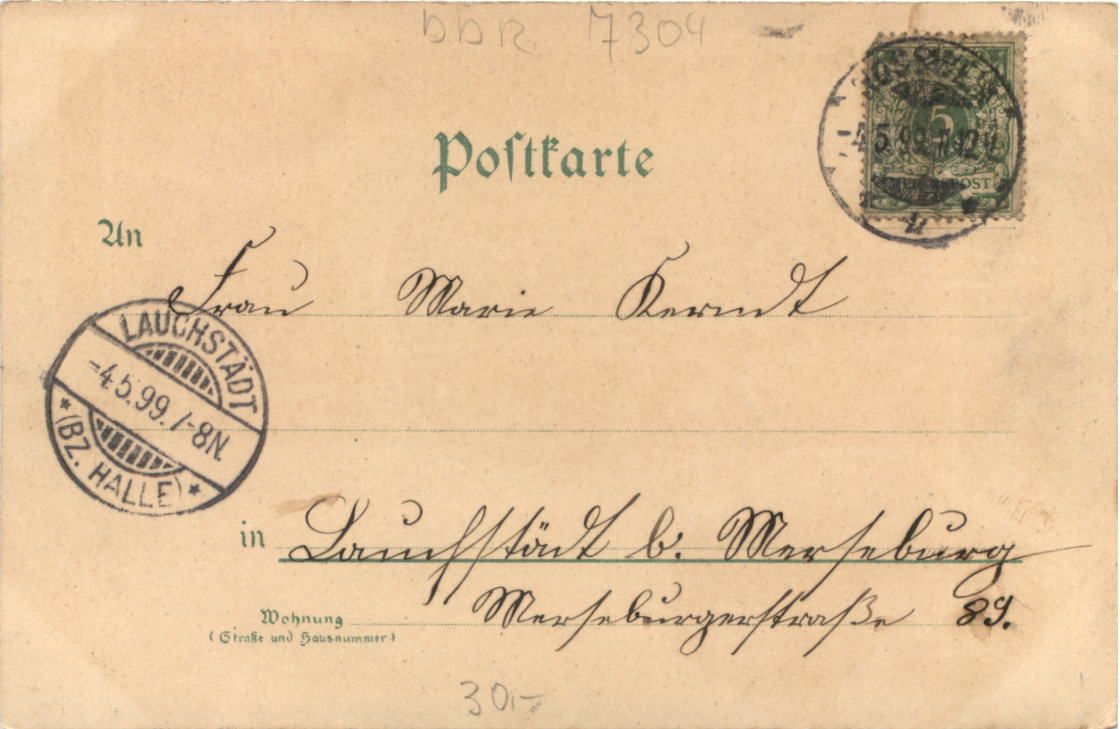 DDR 7304
ROSSWEIN
-4.5.99. 11-12V.
5
REICHSPOST
Postkarte
An
Frau Marie Berndt
LAUCHSTÄDT
-4.5.99. 7-8N.
* (BZ. HALLE) *
in Lauchstädt b. Merseburg
Wohnung Merseburgerstraße 89.
(Straße und Hausnummer)
30,-